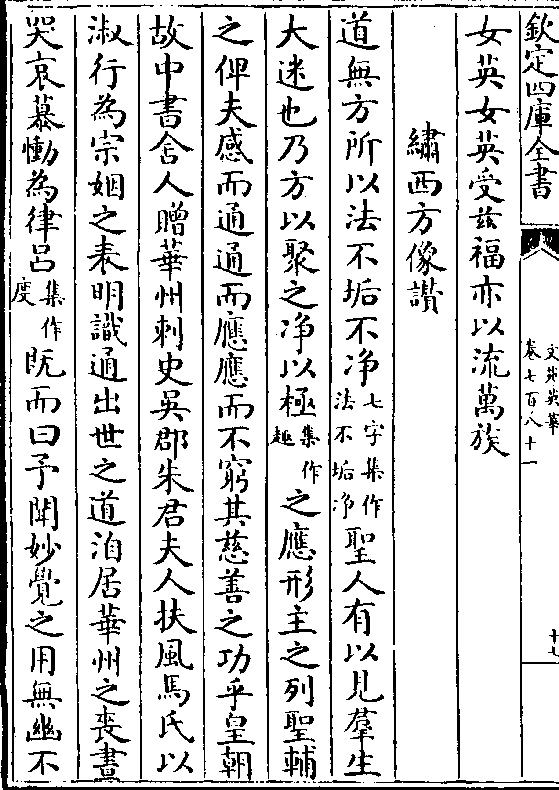 欽定四庫全書
文苑英華
卷七百八十一
十七
女英女英受兹福亦以流萬族
繡西方像讃
道無方所以法不垢不浄七字集作法不垢浄聖人有以見羣生
大迷也乃方以聚之浄以極集作趣之應形主之列聖輔
之俾夫感而通通而應應而不窮其慈善之功乎皇朝
故中書舍人贈華州刺史吳郡朱君夫人扶風馬氏以
淑行為宗姻之表明識通出世之道洎居華州之喪晝
哭哀慕慟為律吕集作度既而曰予聞妙覺之用無幽不